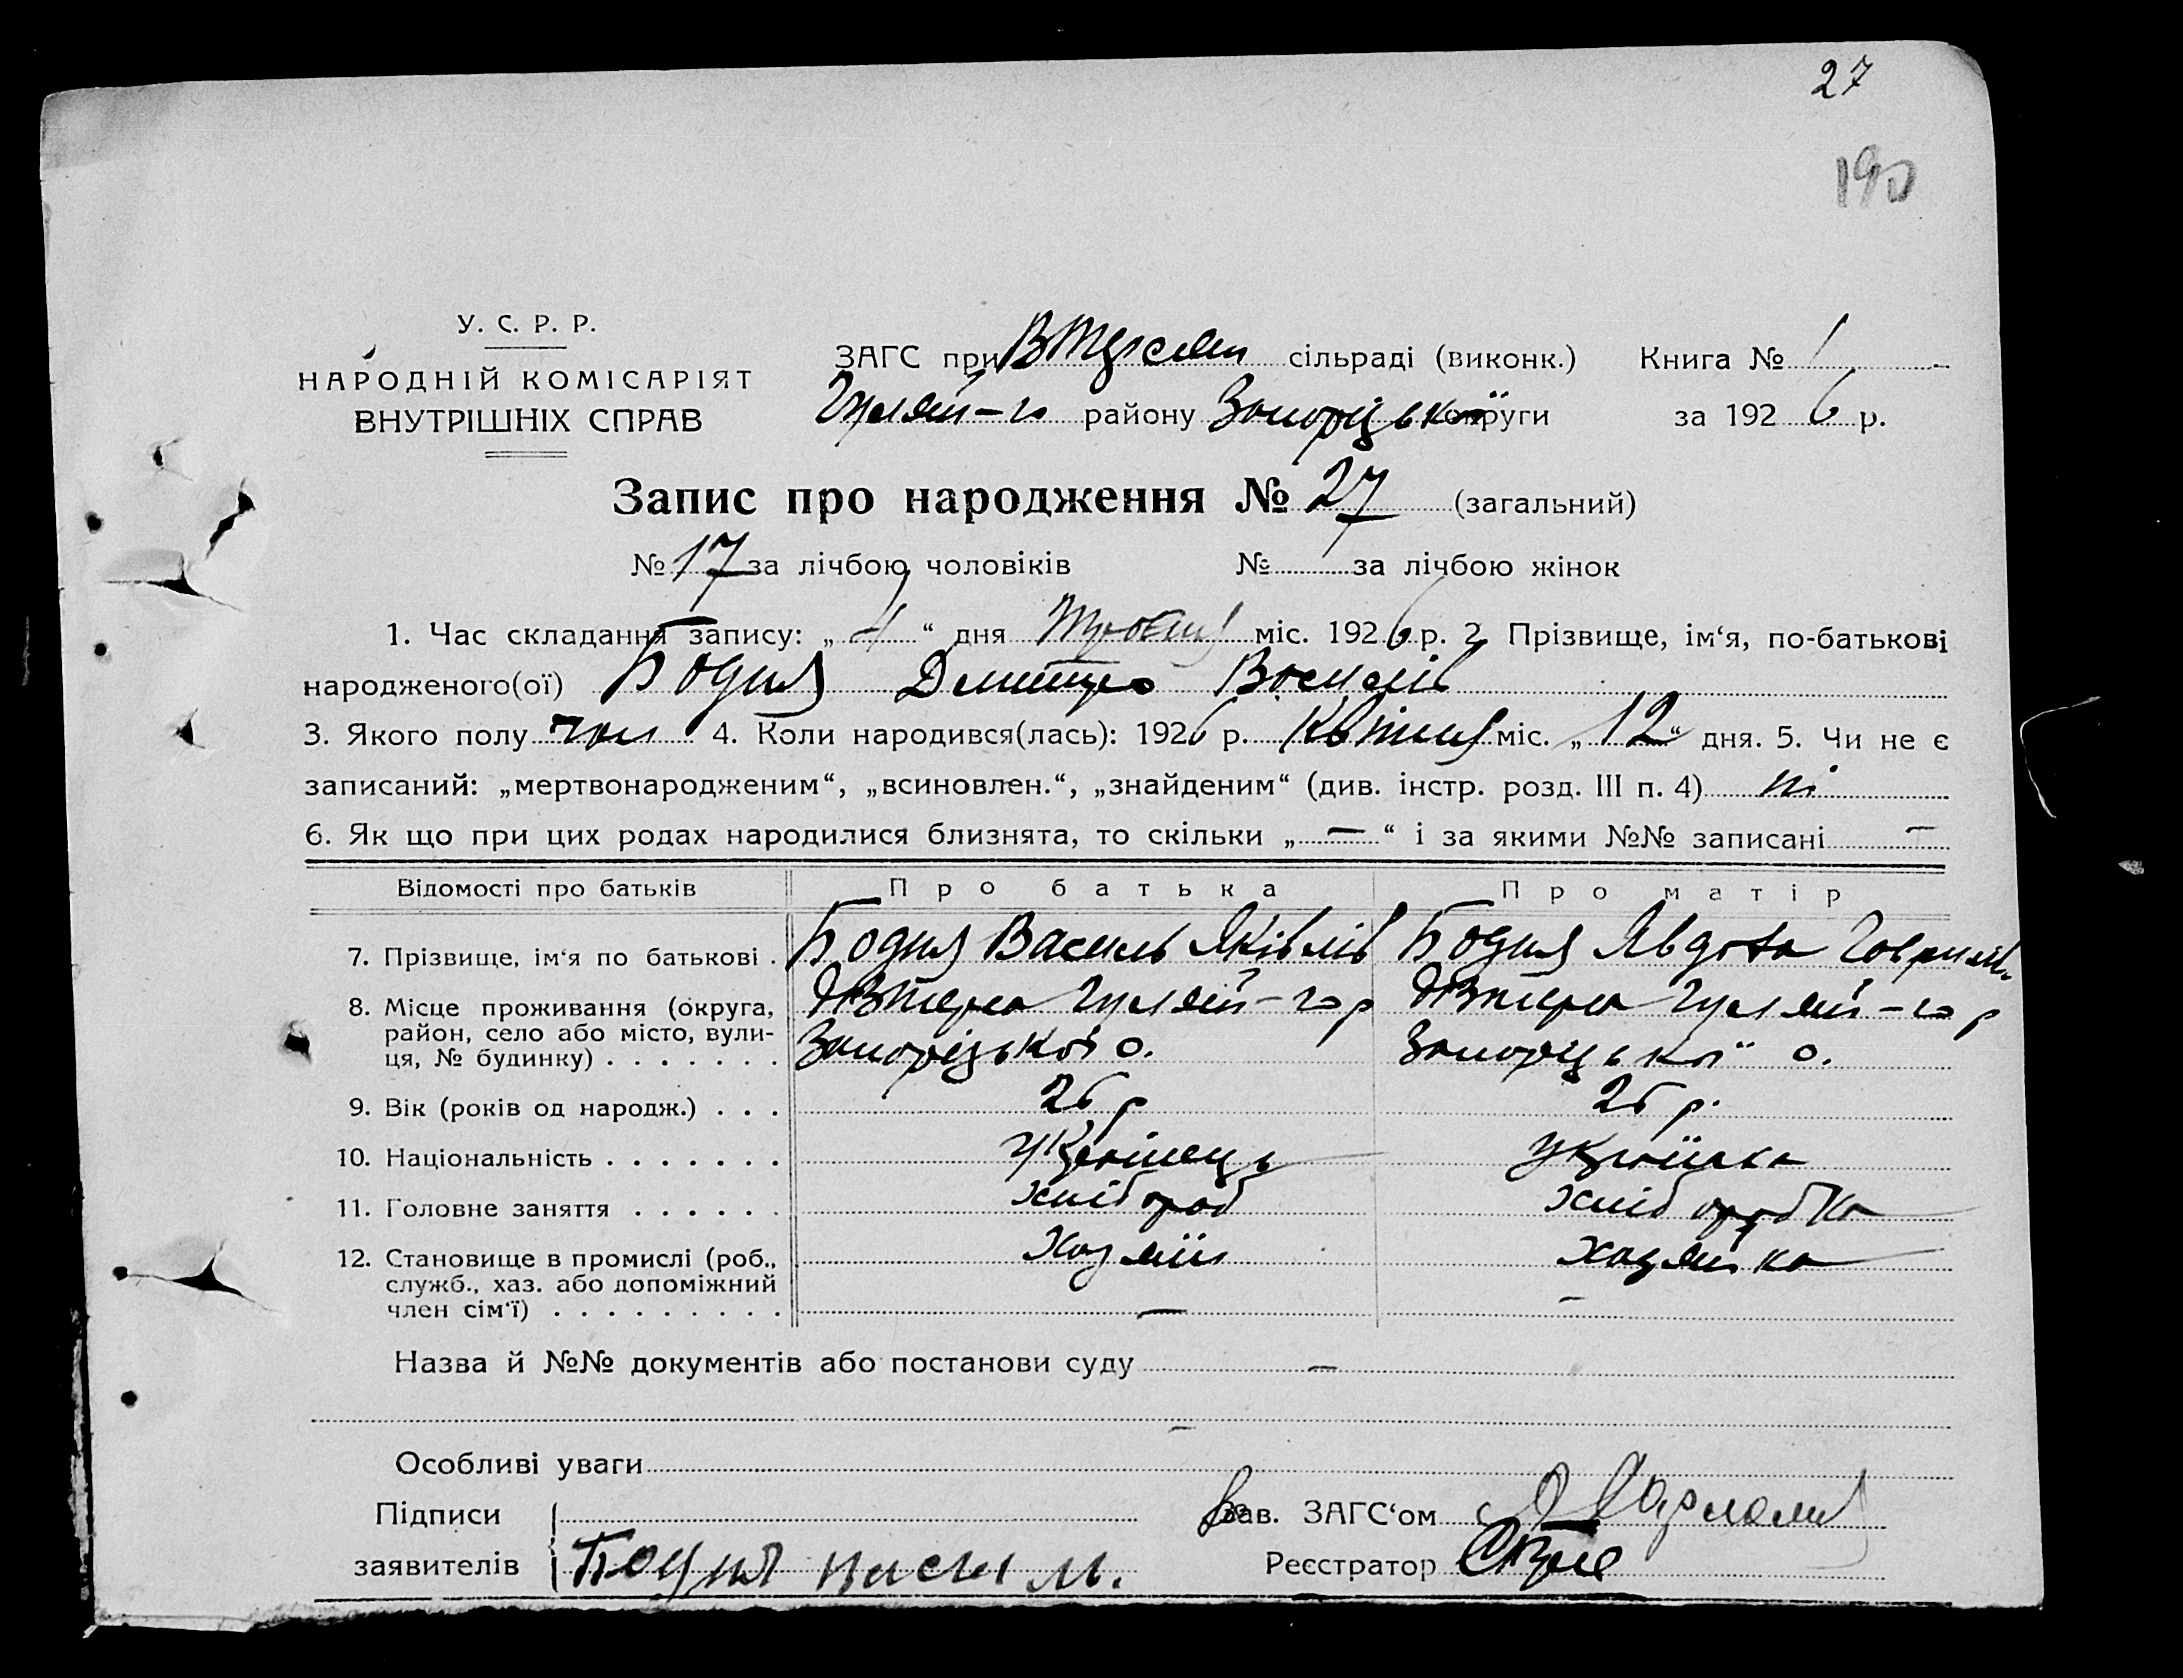 27
190
У. С. Р. Р.
НАРОДНІЙ КОМІСАРІЯТ
ВНУТРІШНІХ СПРАВ
ЗАГС при сільраді (виконк.) Книга № 1
Гуляй-го району Запорізької округи за 1926 р.
Запис про народження № 27 (загальний)
№ 17 за лічбою чоловіків № за лічбою жінок
1. Час складання запису: „4“ дня Травня міс. 1926 р. 2. Прізвище, ім‘я, по-батькові
народженого(ої) Бодня Дмитро Василів
3. Якого полу чол 4. Коли народився(лась): 1926 р. Квітня міс. „12“ дня. 5. Чи не є
записаний: „мертвонародженим“, „всиновлен.“, „знайденим“ (див. інстр. розд. III п. 4) ні
6. Як що при цих родах народилися близнята, то скільки „—“ і за якими №№ записані —
Відомості про батьків Про батька Про матір
7. Прізвище, ім‘я по батькові . Бодня Василь Яківлів Бодня Явдоха Гаврилів.
8. Місце проживання (округа, Гуляй-го р Гуляй-го р
район, село або місто, вули- Запорізької о. Запоріцької о.
ця, № будинку) . . . . . . .
9. Вік (років од народж.) . . . 26 р 26 р.
10. Національність . . . . . . . Українець Українка
11. Головне заняття . . . . . . хлібороб хліборобка
12. Становище в промислі (роб., Хазяїн хазяйка
служб., хаз. або допоміжний
член сім‘ї) . . . . . . . . . — —
Назва й №№ документів або постанови суду —
—
Особливі уваги
Підписи Зав. ЗАГС‘ом
заявителів Бодня Реєстратор